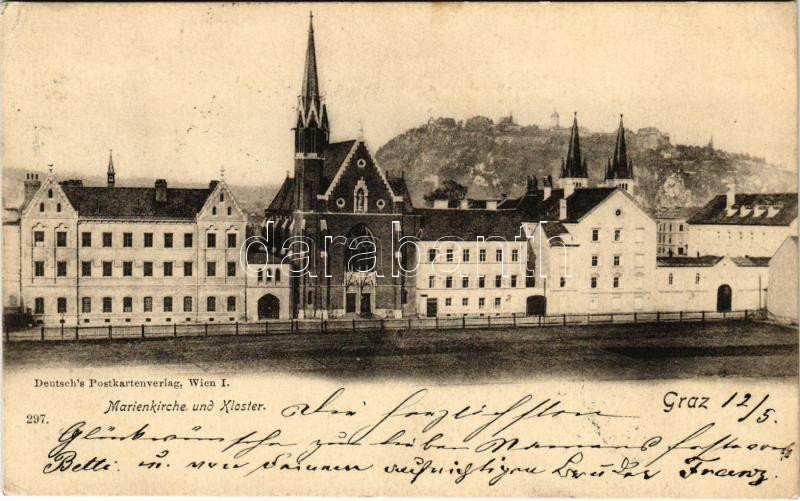 darabanth
Deutsch's Postkartenverlag, Wien I.
297.
Marienkirche und Kloster.
Graz 12/5.
Die herzlichsten
Glückwünsche zum lieben Namensfeste von
Betti. u. von Deinem aufrichtigen Bruder Franz.